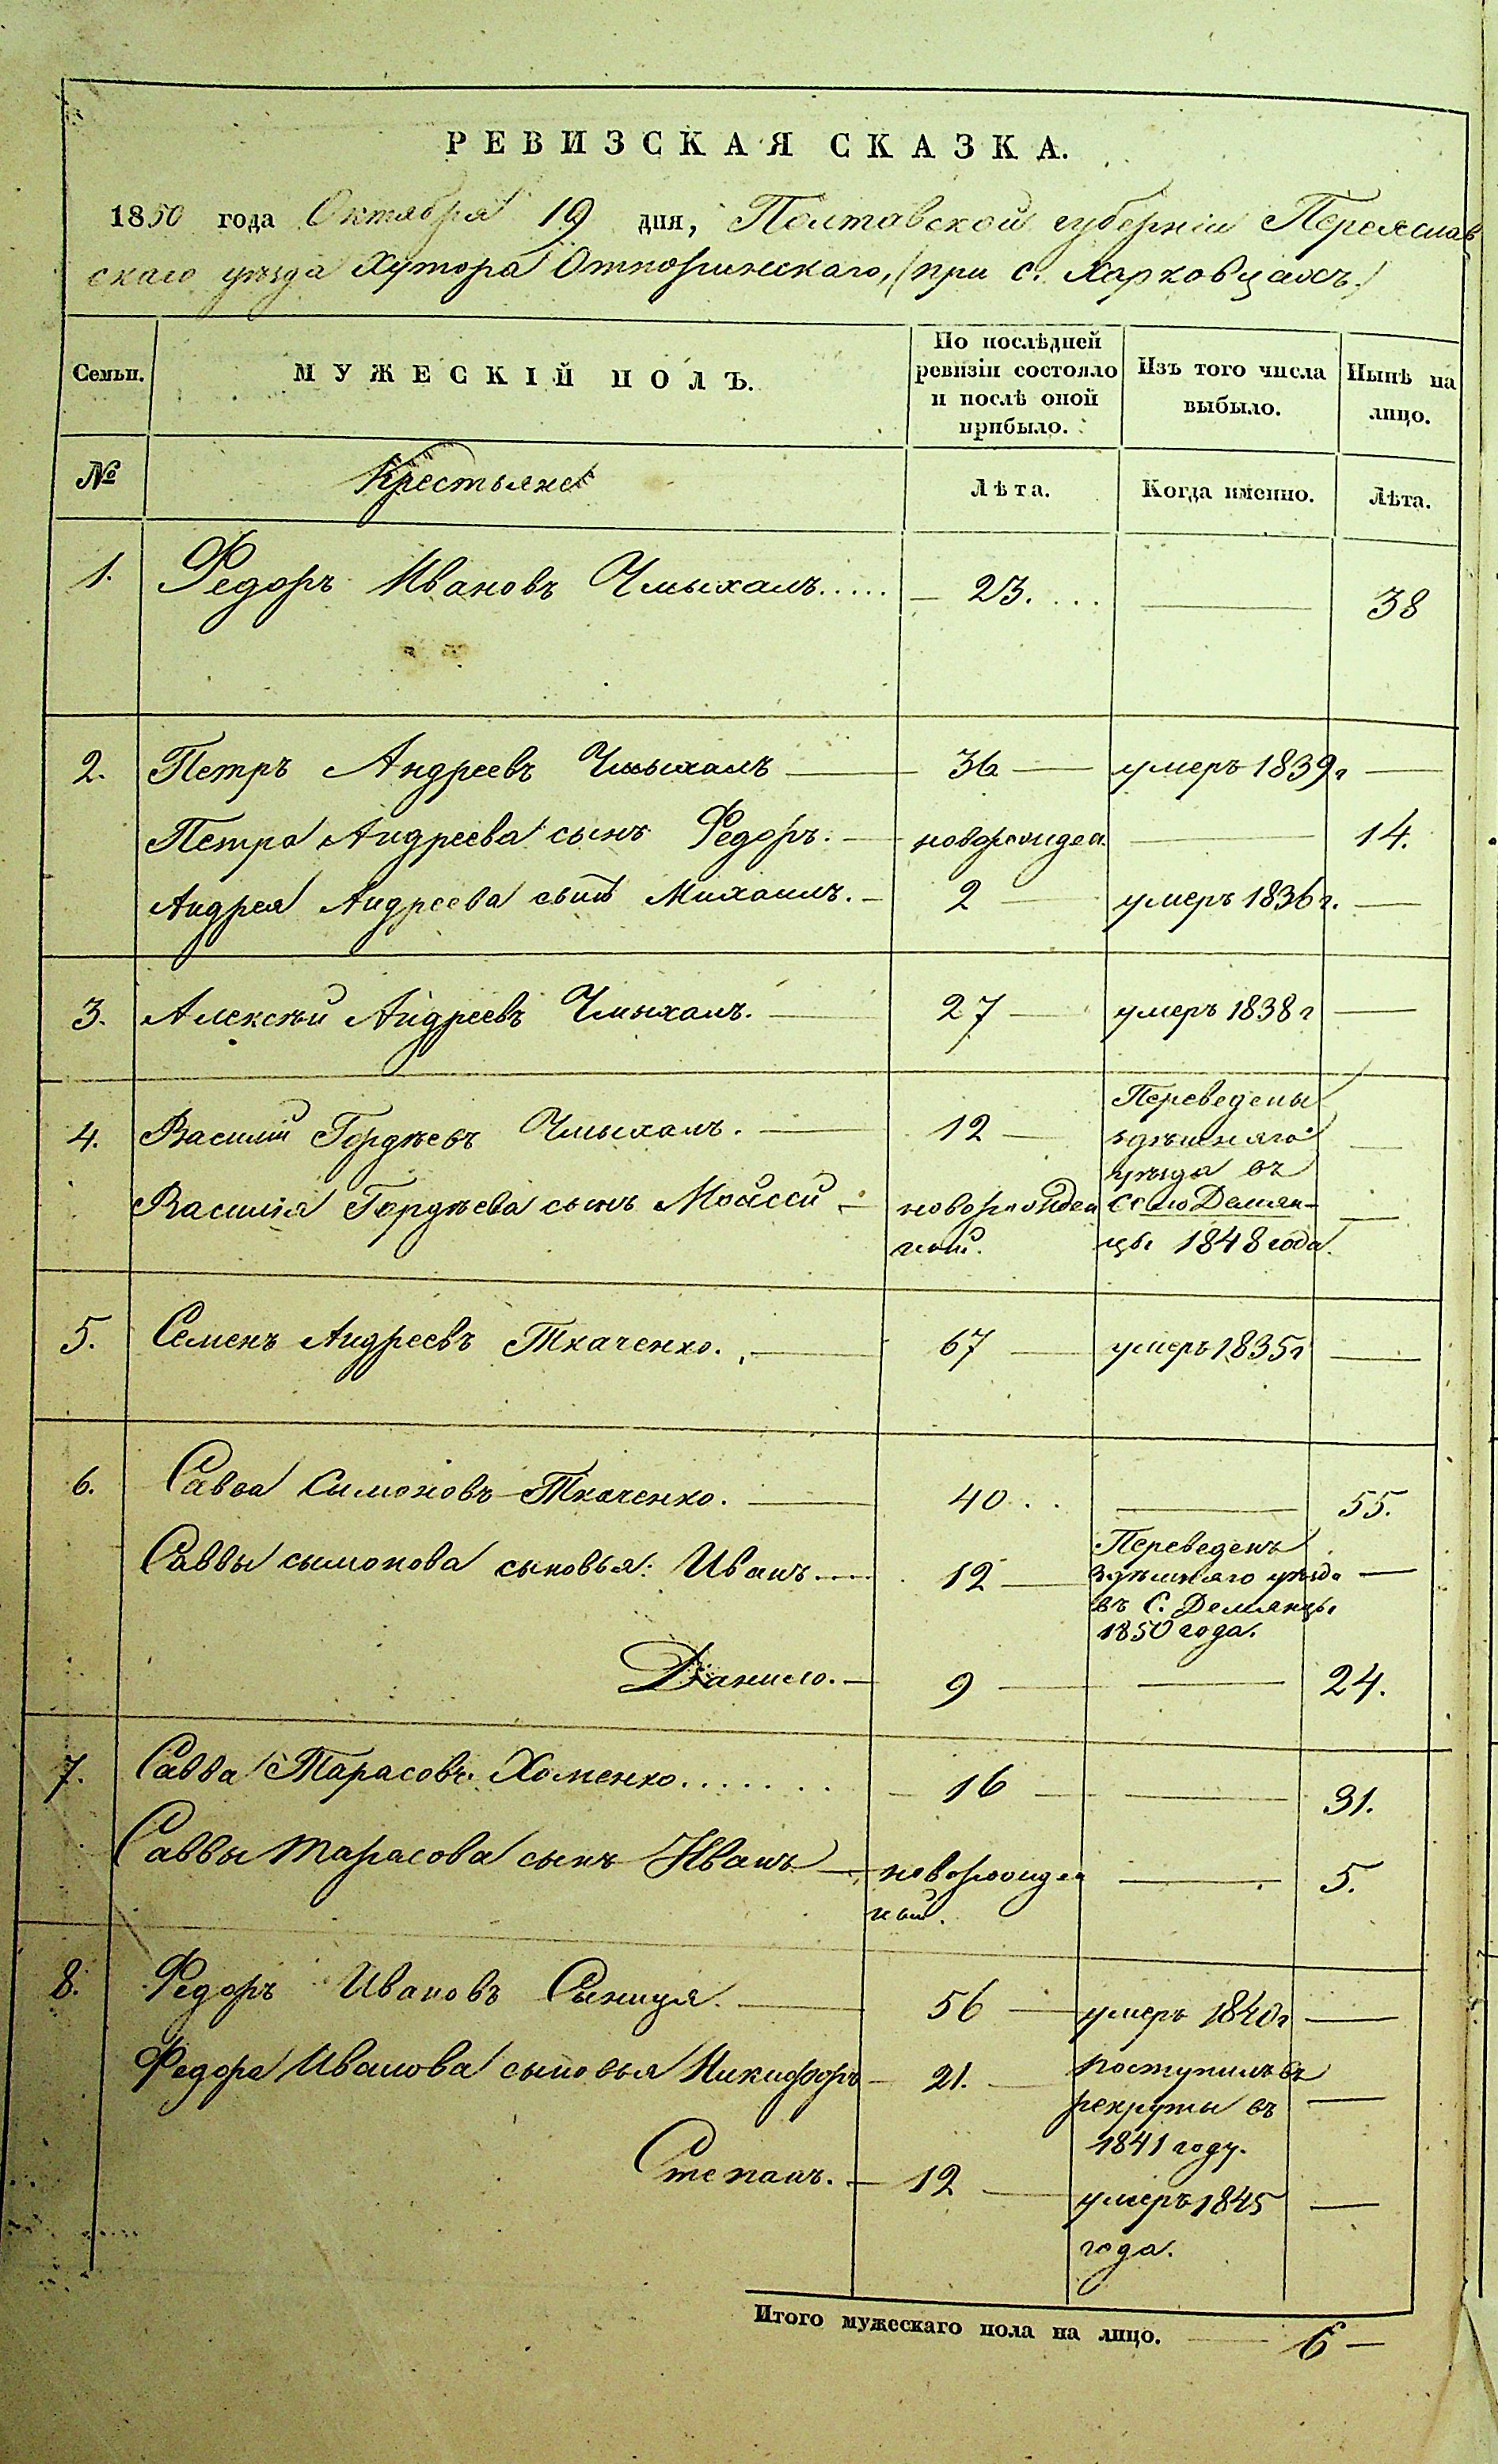 РЕВИЗСКАЯ СКАЗКА.
1850 года Октября 19 дня, Полтавской губерніи Переяслав
скаго уѣзда Хутора (при с. Харковцахъ.)
Семьи. МУЖЕСКІЙ ПОЛЪ. По послѣдней ревизіи состояло и послѣ оной прибыло. Изъ того числа выбыло. Нынѣ на лицо.
№ Крестьяне Лѣта. Когда именно. Лѣта.
1. Федоръ Ивановъ Чмыхалъ..... — 23.... — 38
2. Петръ Андреевъ Чмыхалъ — 36 — умеръ 1839 г —
Петра Андреева сынъ Федоръ. — новорожден — 14.
Андрея Андреева сынъ Михаилъ. — 2 — умеръ 1836 г. —
3. Алексѣй Андреевъ Чмыхалъ. — 27 — умеръ 1838 г —
4. Василій Гордѣевъ Чмыхалъ. — 12 — Переведены
здѣшняго —
уѣзда въ
Василія Гордѣева сынъ Моисей — новорожден село Демян- —
ный. цы 1848 года.
5. Семенъ Андреевъ Ткаченко. — 67 — умеръ 1835 г —
6. Савва Симоновъ Ткаченко. — 40.. — 55.
Саввы сымонова сыновья: Иванъ.... 12 — Переведенъ
здѣшняго уѣзда —
въ С. Демянцы
1850 года.
Данило. — 9 — — 24.
7. Савва Тарасовъ Хоменко....... — 16 — — 31.
Саввы Тарасова сынъ Иванъ — новорожден — 5.
ный.
8. Федоръ Ивановъ Сыниця. — 56 — умеръ 1840 г —
Федора Иванова сыновья Никифоръ — 21. — поступилъ въ
рекруты въ —
1841 году.
Степанъ. — 12 — умеръ 1845 —
года.
Итого мужескаго пола на лицо. — 6 —